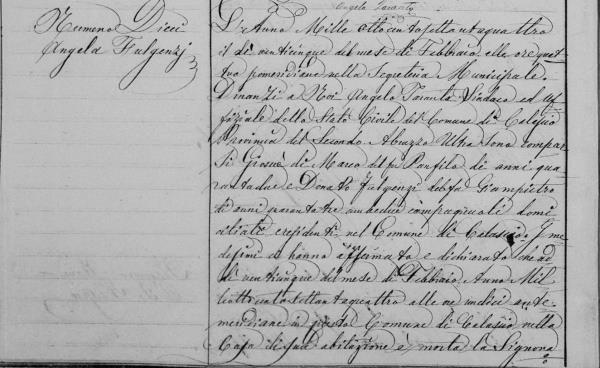 Angelo Taranta
Numero Dieci
Angela Fulgenzj
L'Anno Mille ottocentosettantaquattro
il dì venticinque del mese di Febbraio alle ore quat
tro pomeridiane nella Segreteria Municipale.
Dinanzi a Noi Angelo Taranta Sindaco ed Uf
fiziale dello Stato Civile del Comune di Calascio
Provincia del Secondo Abruzzo Ultra Sono compar
si Giosuè di Marco del fu Panfilo di anni qua
rantadue e Donato Fulgenzi del fu Giampietro
di anni quarantatre amendue domi
ciliati e residenti nel Comune di Calascio. I me
desimi ci hanno affermato e dichiarato che ad
dì venticinque del mese di Febbraio Anno Mil
leottocentosettantaquattro alle ore undici ante
meridiane in questo Comune di Calascio nella
Casa di sua abitazione è morta la Signora